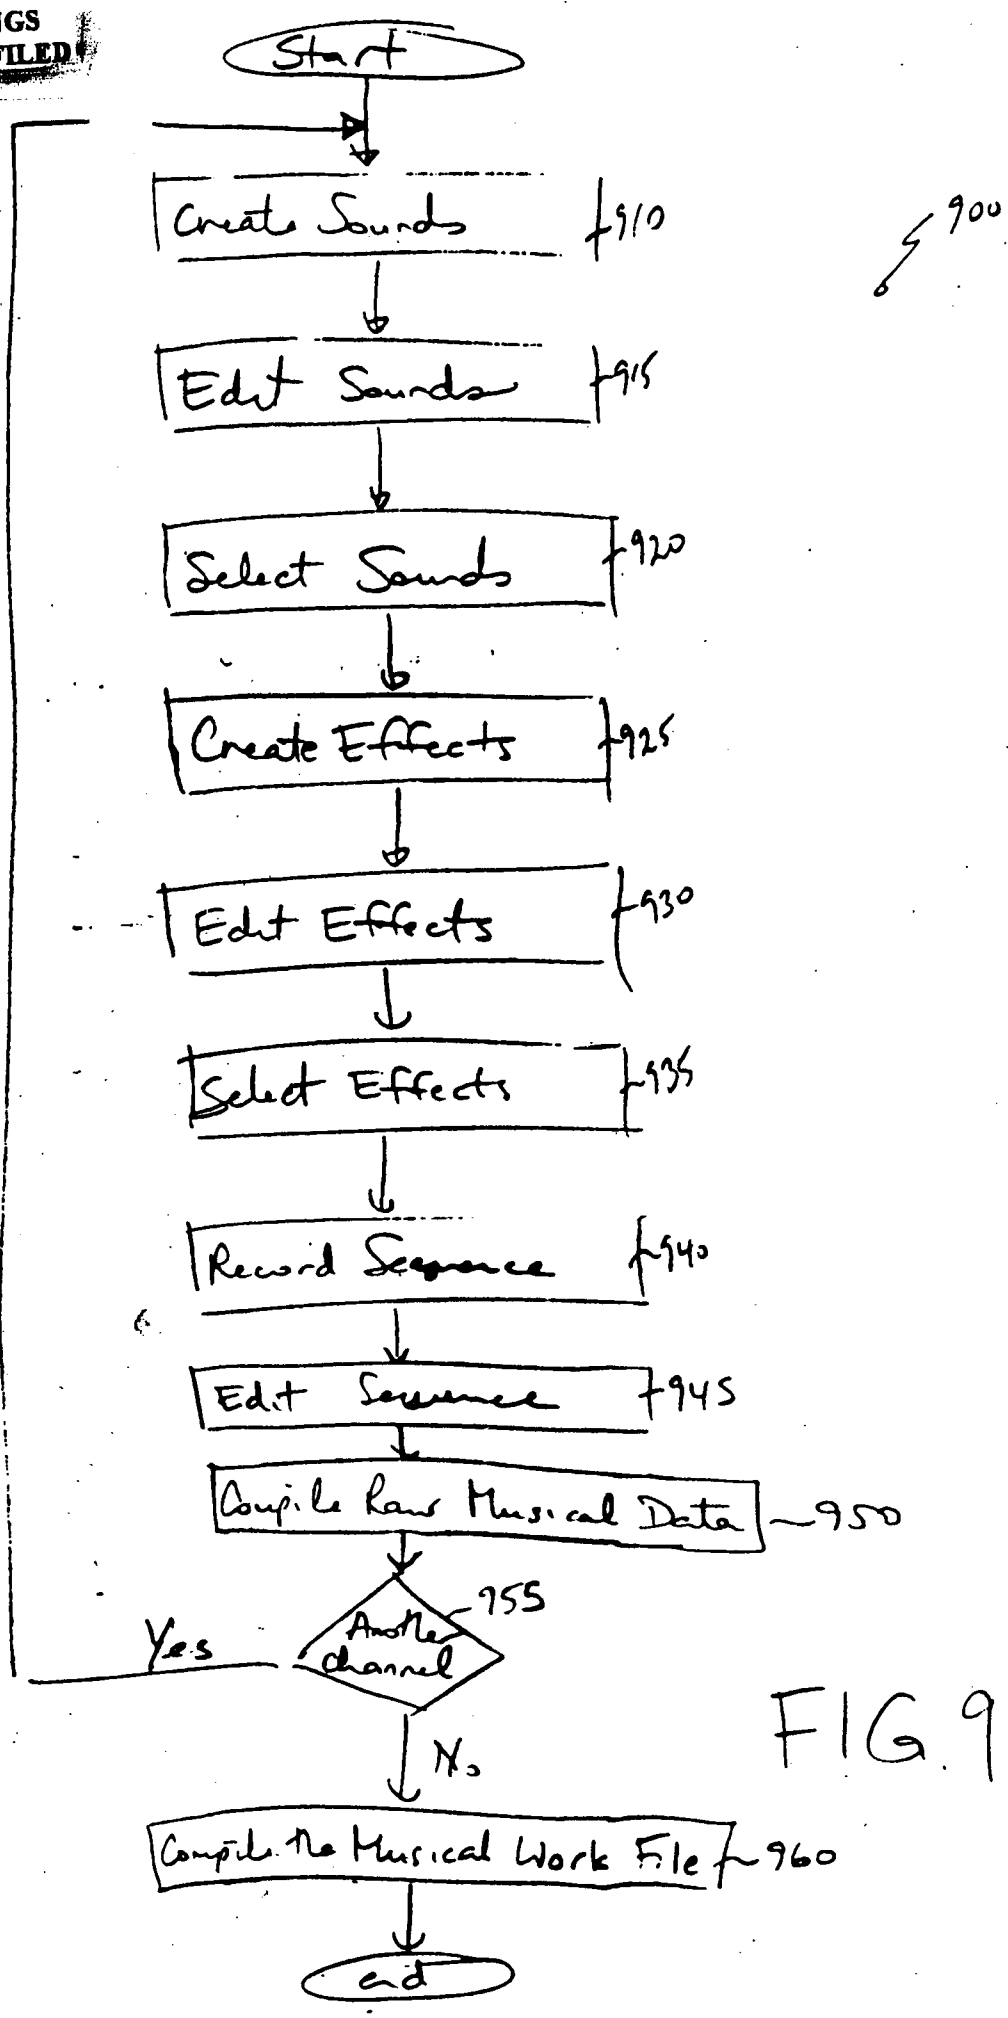 NGS
FILED
Start
Create Sounds 910
900
Edit Sounds 915
Select Sounds 920
Create Effects 925
Edit Effects 930
Select Effects 935
Record Sequence 940
Edit Sequence 945
Compile Raw Musical Data 950
955
Another
channel
Yes
No
FIG. 9
Compile the Musical Work File 960
end